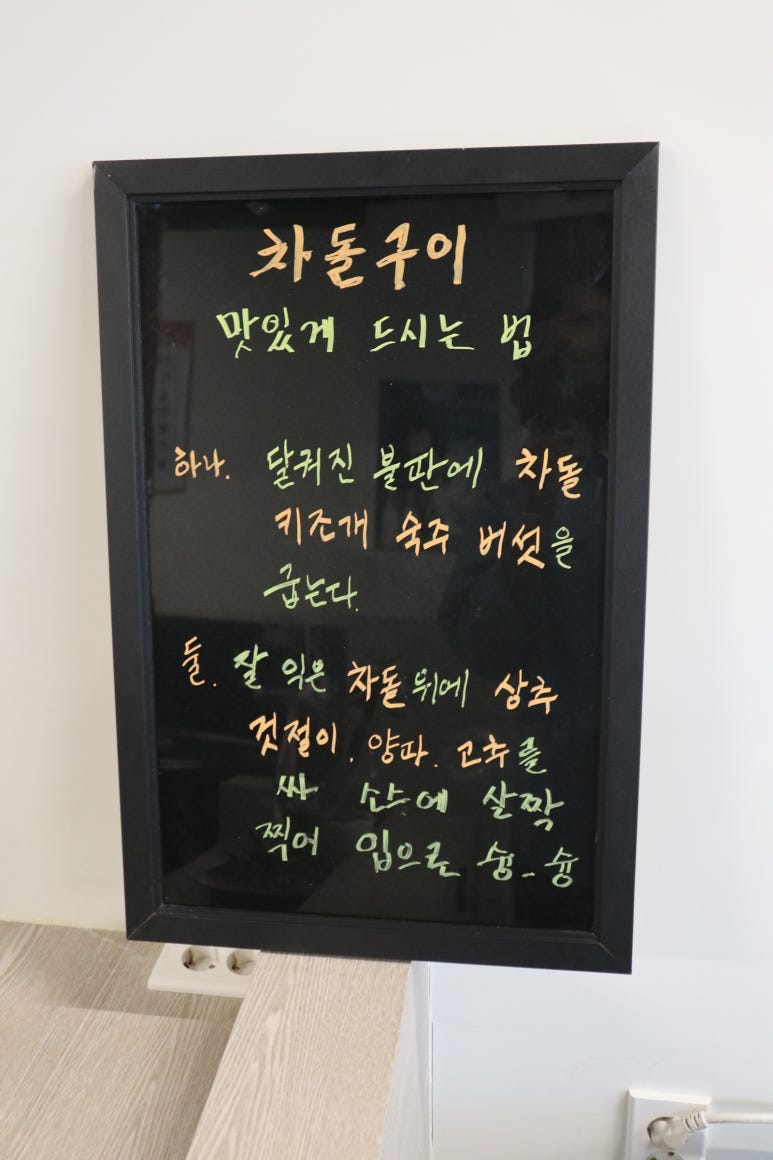 차돌구이
맛있게 드시는 법
하나. 달궈진 불판에 차돌
키조개 숙주 버섯을
굽는다.
둘. 잘 익은 차돌위에 상추
겉절이. 양파. 고추를
싸 소스에 살짝
찍어 입으로 슝-슝